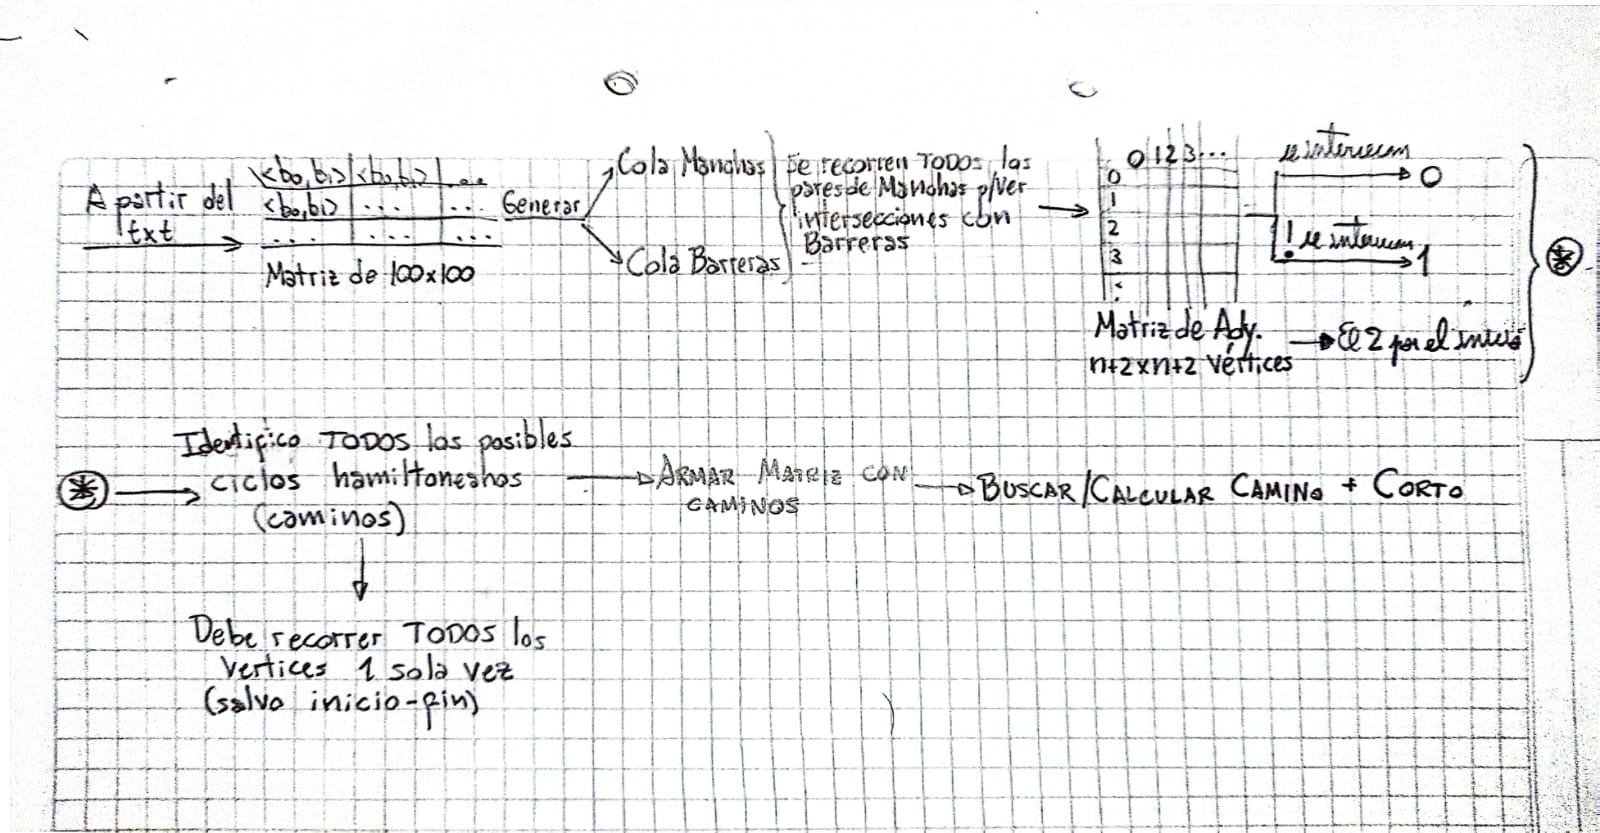 A partir del
txt
<b0,b1> <b0,b1> ...
<b0,b1> ... ...
... ... ...
Matriz de 100x100
Generar
Cola Manchas
Cola Barreras
Se recorren TODOS los
pares de Manchas p/ver
intersecciones con
Barreras
0 1 2 3 ...
0
1
2
3
:
se intersecan
0
! se intersecan
1
Matriz de Ady.
n+2xn+2 Vértices
El 2 por el inicio
*
*
Identifico TODOS los posibles
ciclos hamiltoneanos
(caminos)
ARMAR MATRIZ CON
CAMINOS
BUSCAR/CALCULAR CAMINO + CORTO
Debe recorrer TODOS los
vertices 1 sola vez
(salvo inicio-fin)